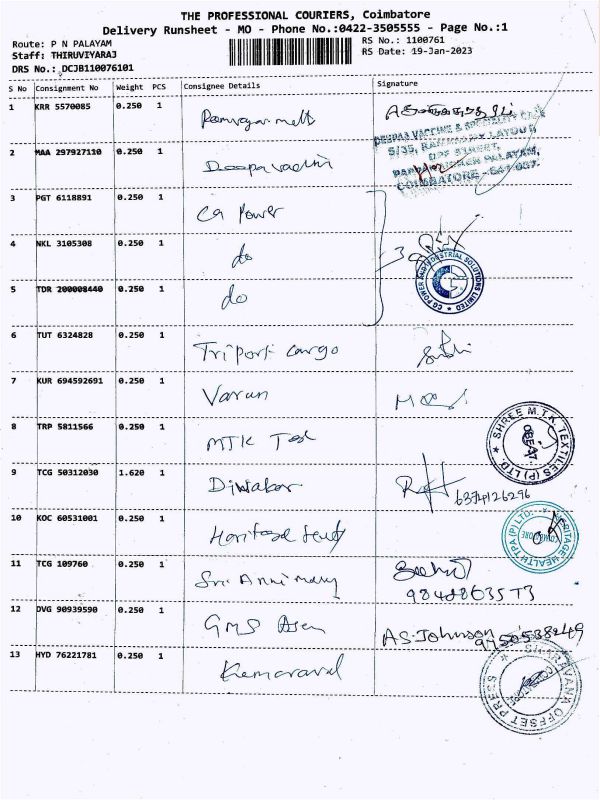 THE PROFESSIONAL COURIERS, Coimbatore
Delivery Runsheet - MO - Phone No.:0422-3505555 - Page No.:1
Route: P N PALAYAM
Staff: THIRUVIYARAJ
DRS No.: DCJB110076101
RS No.: 1100761
RS Date: 19-Jan-2023
S No Consignment No Weight PCS Consignee Details Signature
1 KRR 5570085 0.250 1
DEEPAA VACCINE & SPECIALITY
5/35, LAYOUT
STREET,
PALAYAM,
COIMBATORE - 641 037.
2 MAA 297927110 0.250 1 Deepa
3 PGT 6118891 0.250 1 CG Power
4 NKL 3105308 0.250 1 do
5 TDR 200008440 0.250 1 do
CG POWER AND INDUSTRIAL SOLUTIONS LIMITED
6 TUT 6324828 0.250 1 Triport cargo
7 KUR 694592691 0.250 1 Varun
8 TRP 5811566 0.250 1 MTK Tex
SHREE M.T.K. TEXTILES (P) LTD.
9 TCG 50312030 1.620 1 Diwakar
6374126296
10 KOC 60531001 0.250 1
HERITAGE HEALTH TPA (P) LTD.
COIMBATORE
11 TCG 109760 0.250 1 Sri
12 DVG 90939590 0.250 1 GMS A.S.Johnson
9750538249
13 HYD 76221781 0.250 1
SARAVANA OFFSET PRESS